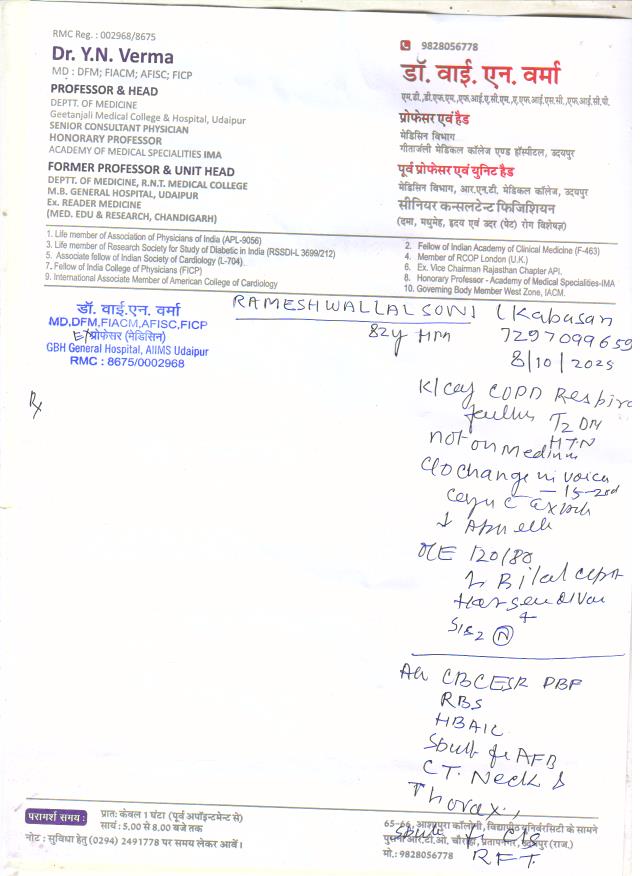 RMC Reg. : 002968/8675
Dr. Y.N. Verma
MD : DFM; FIACM; AFISC; FICP
PROFESSOR & HEAD
DEPTT. OF MEDICINE
Geetanjali Medical College & Hospital, Udaipur
SENIOR CONSULTANT PHYSICIAN
HONORARY PROFESSOR
ACADEMY OF MEDICAL SPECIALITIES IMA
FORMER PROFESSOR & UNIT HEAD
DEPTT. OF MEDICINE, R.N.T. MEDICAL COLLEGE
M.B. GENERAL HOSPITAL, UDAIPUR
Ex. READER MEDICINE
(MED. EDU & RESEARCH, CHANDIGARH)
9828056778
डॉ. वाई. एन. वर्मा
एम.डी.,डी.एफ.एम.,एफ.आई.ए.सी.एम.,ए.एफ.आई.एस.सी.,एफ.आई.सी.पी.
प्रोफेसर एवं हैड
मेडिसिन विभाग
गीतांजली मेडिकल कॉलेज एण्ड हॉस्पीटल, उदयपुर
पूर्व प्रोफेसर एवं युनिट हैड
मेडिसिन विभाग, आर.एन.टी. मेडिकल कॉलेज, उदयपुर
सीनियर कन्सलटेन्ट फिजिशियन
(दमा, मधुमेह, हृदय एवं उदर (पेट) रोग विशेषज्ञ)
1. Life member of Association of Physicians of India (APL-9056)
3. Life member of Research Society for Study of Diabetic in India (RSSDI-L 3699/212)
5. Associate fellow of Indian Society of Cardiology (L-704)
7. Fellow of India College of Physicians (FICP)
9. International Associate Member of American College of Cardiology
2. Fellow of Indian Academy of Clinical Medicine (F-463)
4. Member of RCOP London (U.K.)
6. Ex. Vice Chairman Rajasthan Chapter API.
8. Honorary Professor - Academy of Medical Specialities-IMA
10. Governing Body Member West Zone, IACM.
डॉ. वाई.एन. वर्मा
MD,DFM,FIACM,AFISC,FICP
Ex प्रोफेसर (मेडिसिन)
GBH General Hospital, AIIMS Udaipur
RMC : 8675/0002968
RAMESHWALLAL SONI (Kabasan
82y 7297099659
8/10/2025
Rx
COPD
T2 DM
HTN
not on
change in voice
O/E 120/80
S1S2 (N)
CBC ESR PBF
RBS
HBA1C
AFB
CT. Neck &
Thorax,
C/S
RFT.
परामर्श समय :
प्रातः केवल 1 घंटा (पूर्व अपॉइन्टमेन्ट से)
सायं : 5.00 से 8.00 बजे तक
नोट : सुविधा हेतु (0294) 2491778 पर समय लेकर आवें।
65-66, आशापुरा कॉलोनी, विद्यापीठ यूनिवरसिटी के सामने
पुराना आर.टी.ओ. चौराहा, प्रतापनगर, उदयपुर (राज.)
मो.: 9828056778